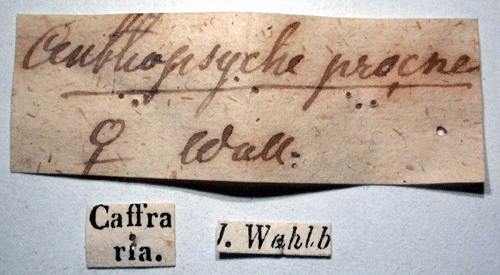 Anthopsyche procne
♀ Wall.
Caffra
ria.
J. Wahlb